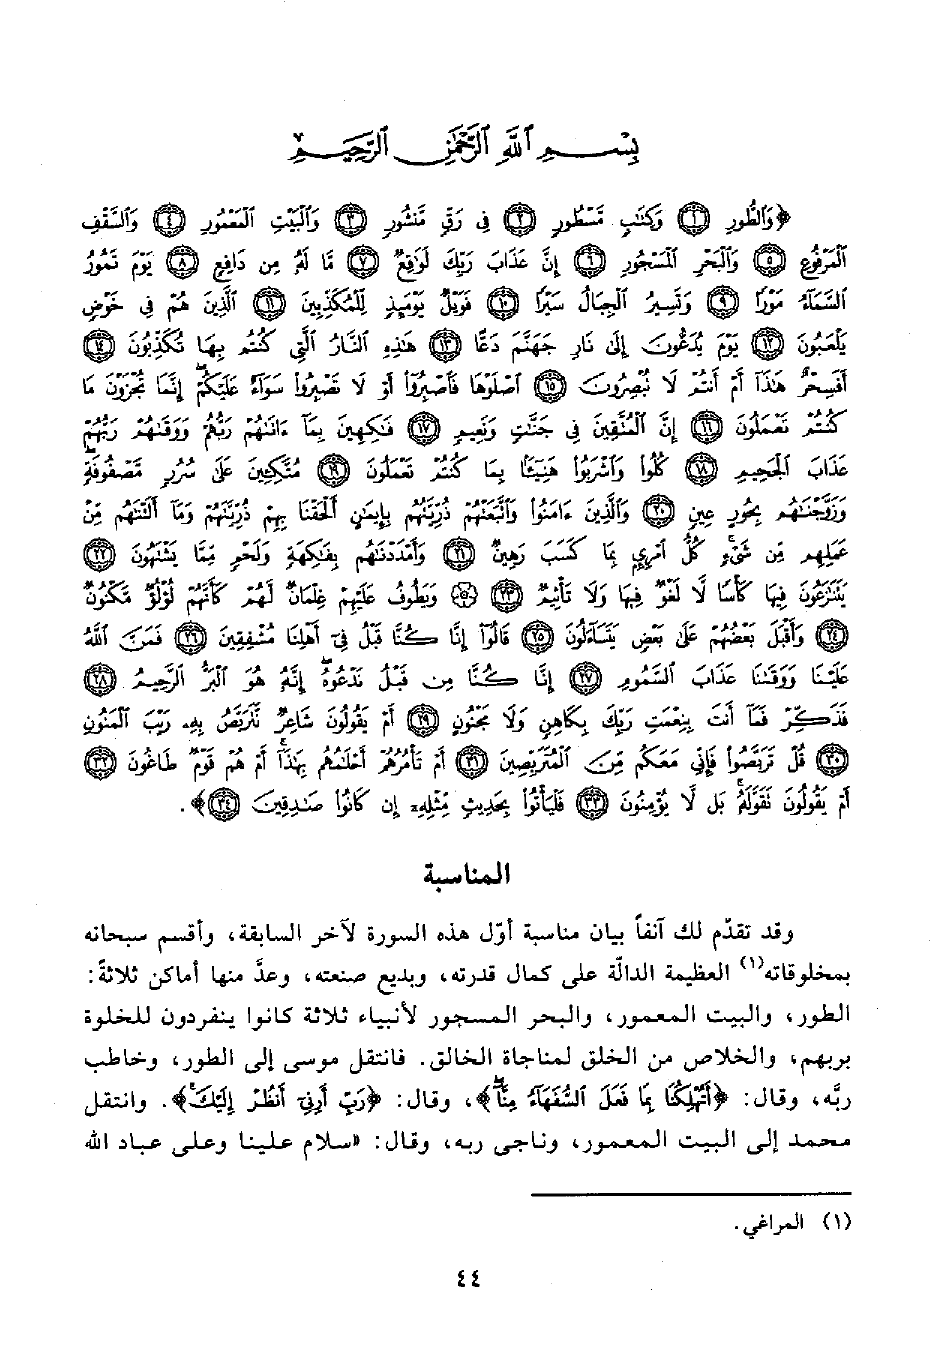 بِسْمِ اللَّهِ الرَّحْمَٰنِ الرَّحِيمِ
﴿وَالطُّورِ ۝١ وَكِتَابٍ مَّسْطُورٍ ۝٢ فِي رَقٍّ مَّنشُورٍ ۝٣ وَالْبَيْتِ الْمَعْمُورِ ۝٤ وَالسَّقْفِ
الْمَرْفُوعِ ۝٥ وَالْبَحْرِ الْمَسْجُورِ ۝٦ إِنَّ عَذَابَ رَبِّكَ لَوَاقِعٌ ۝٧ مَّا لَهُ مِن دَافِعٍ ۝٨ يَوْمَ تَمُورُ
السَّمَاءُ مَوْرًا ۝٩ وَتَسِيرُ الْجِبَالُ سَيْرًا ۝١٠ فَوَيْلٌ يَوْمَئِذٍ لِّلْمُكَذِّبِينَ ۝١١ الَّذِينَ هُمْ فِي خَوْضٍ
يَلْعَبُونَ ۝١٢ يَوْمَ يُدَعُّونَ إِلَىٰ نَارِ جَهَنَّمَ دَعًّا ۝١٣ هَٰذِهِ النَّارُ الَّتِي كُنتُم بِهَا تُكَذِّبُونَ ۝١٤
أَفَسِحْرٌ هَٰذَا أَمْ أَنتُمْ لَا تُبْصِرُونَ ۝١٥ اصْلَوْهَا فَاصْبِرُوا أَوْ لَا تَصْبِرُوا سَوَاءٌ عَلَيْكُمْ إِنَّمَا تُجْزَوْنَ مَا
كُنتُمْ تَعْمَلُونَ ۝١٦ إِنَّ الْمُتَّقِينَ فِي جَنَّاتٍ وَنَعِيمٍ ۝١٧ فَاكِهِينَ بِمَا ءَاتَاهُمْ رَبُّهُمْ وَوَقَاهُمْ رَبُّهُمْ
عَذَابَ الْجَحِيمِ ۝١٨ كُلُوا وَاشْرَبُوا هَنِيئًا بِمَا كُنتُمْ تَعْمَلُونَ ۝١٩ مُتَّكِئِينَ عَلَىٰ سُرُرٍ مَّصْفُوفَةٍ
وَزَوَّجْنَاهُم بِحُورٍ عِينٍ ۝٢٠ وَالَّذِينَ ءَامَنُوا وَاتَّبَعَتْهُمْ ذُرِّيَّتُهُم بِإِيمَانٍ أَلْحَقْنَا بِهِمْ ذُرِّيَّتَهُمْ وَمَا أَلَتْنَاهُم مِّنْ
عَمَلِهِم مِّن شَيْءٍ كُلُّ امْرِئٍ بِمَا كَسَبَ رَهِينٌ ۝٢١ وَأَمْدَدْنَاهُم بِفَاكِهَةٍ وَلَحْمٍ مِّمَّا يَشْتَهُونَ ۝٢٢
يَتَنَازَعُونَ فِيهَا كَأْسًا لَّا لَغْوٌ فِيهَا وَلَا تَأْثِيمٌ ۝٢٣ ۞ وَيَطُوفُ عَلَيْهِمْ غِلْمَانٌ لَّهُمْ كَأَنَّهُمْ لُؤْلُؤٌ مَّكْنُونٌ
۝٢٤ وَأَقْبَلَ بَعْضُهُمْ عَلَىٰ بَعْضٍ يَتَسَاءَلُونَ ۝٢٥ قَالُوا إِنَّا كُنَّا قَبْلُ فِي أَهْلِنَا مُشْفِقِينَ ۝٢٦ فَمَنَّ اللَّهُ
عَلَيْنَا وَوَقَانَا عَذَابَ السَّمُومِ ۝٢٧ إِنَّا كُنَّا مِن قَبْلُ نَدْعُوهُ إِنَّهُ هُوَ الْبَرُّ الرَّحِيمُ ۝٢٨
فَذَكِّرْ فَمَا أَنتَ بِنِعْمَتِ رَبِّكَ بِكَاهِنٍ وَلَا مَجْنُونٍ ۝٢٩ أَمْ يَقُولُونَ شَاعِرٌ نَّتَرَبَّصُ بِهِ رَيْبَ الْمَنُونِ
۝٣٠ قُلْ تَرَبَّصُوا فَإِنِّي مَعَكُم مِّنَ الْمُتَرَبِّصِينَ ۝٣١ أَمْ تَأْمُرُهُمْ أَحْلَامُهُم بِهَٰذَا أَمْ هُمْ قَوْمٌ طَاغُونَ ۝٣٢
أَمْ يَقُولُونَ تَقَوَّلَهُ بَل لَّا يُؤْمِنُونَ ۝٣٣ فَلْيَأْتُوا بِحَدِيثٍ مِّثْلِهِ إِن كَانُوا صَادِقِينَ ۝٣٤﴾.
المناسبة
وقد تقدّم لك آنفاً بيان مناسبة أوّل هذه السورة لآخر السابقة، وأقسم سبحانه
بمخلوقاته(١) العظيمة الدالّة على كمال قدرته، وبديع صنعته، وعدَّ منها أماكن ثلاثةً:
الطور، والبيت المعمور، والبحر المسجور لأنبياء ثلاثة كانوا ينفردون للخلوة
بربهم، والخلاص من الخلق لمناجاة الخالق. فانتقل موسى إلى الطور، وخاطب
ربَّه، وقال: ﴿أَتُهْلِكُنَا بِمَا فَعَلَ السُّفَهَاءُ مِنَّا﴾، وقال: ﴿رَبِّ أَرِنِي أَنظُرْ إِلَيْكَ﴾. وانتقل
محمد إلى البيت المعمور، وناجى ربه، وقال: «سلام علينا وعلى عباد الله
(١) المراغي.
٤٤